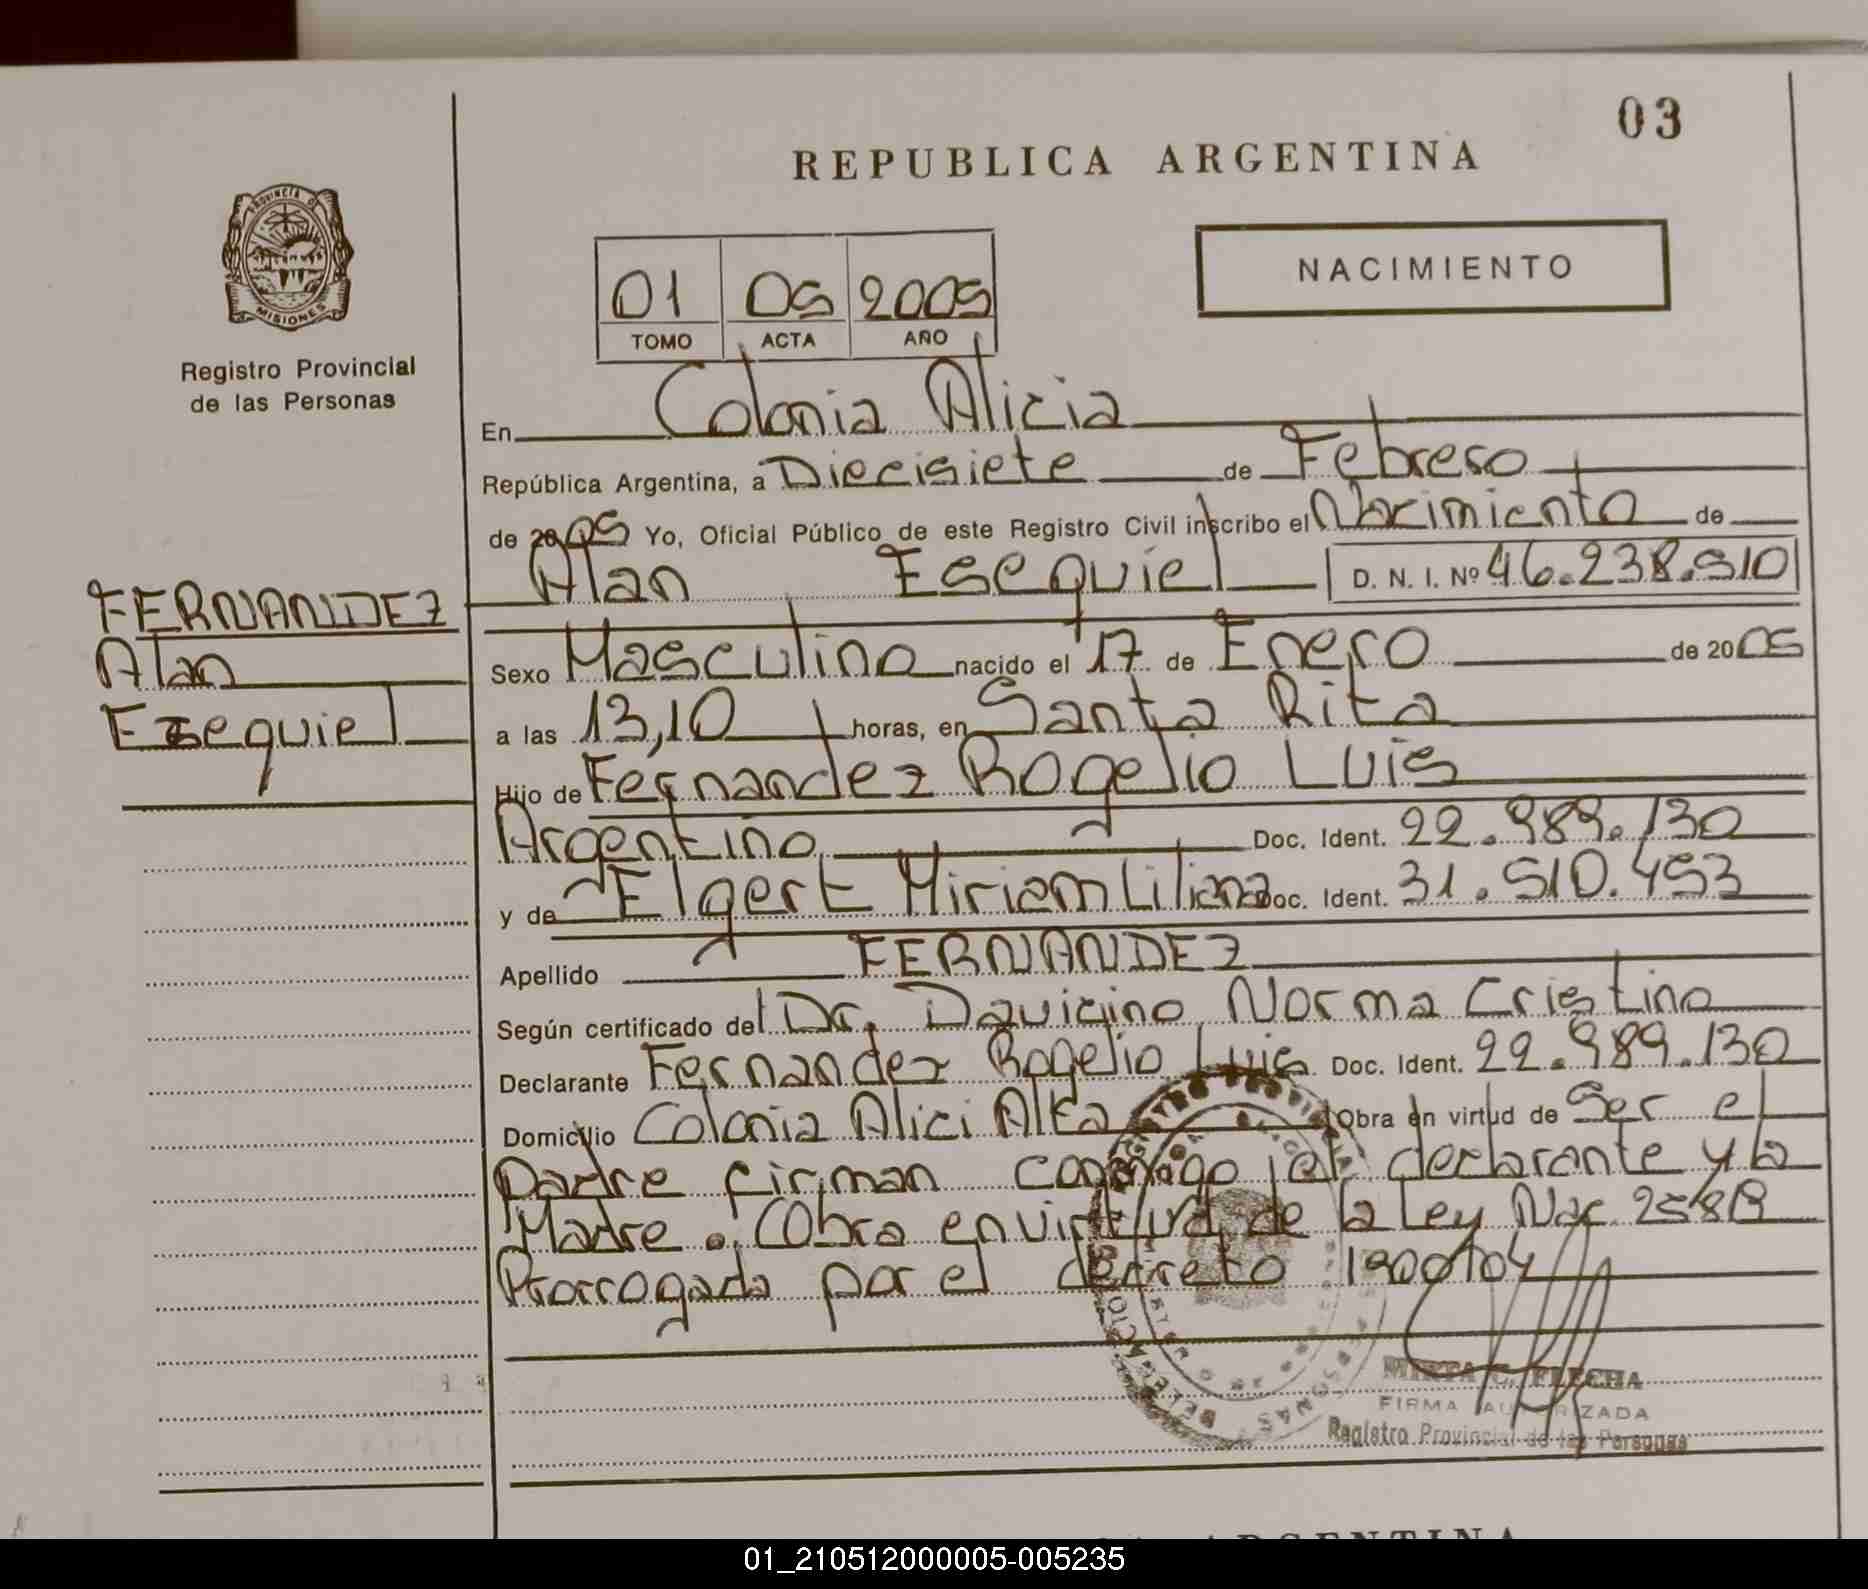 03
REPUBLICA ARGENTINA
PROVINCIA DE
MISIONES
Registro Provincial
de las Personas
01 05 2005
TOMO ACTA AÑO
NACIMIENTO
En Colonia Alicia
República Argentina, a Diecisiete de Febrero
de 2005 Yo, Oficial Público de este Registro Civil inscribo el Nacimiento de
Alan Esequiel D. N. I. Nº 46.238.510
FERNANDEZ
Alan
Esequiel
Sexo Masculino nacido el 17 de Enero de 2005
a las 13,10 horas, en Santa Rita
Hijo de Fernandez Rogelio Luis
Argentino Doc. Ident. 22.989.130
y de Elgert Miriam Liliana Doc. Ident. 31.510.453
Apellido FERNANDEZ
Según certificado del Dr. Norma Cristina
Declarante Fernandez Rogelio Luis Doc. Ident. 22.989.130
Domicilio Colonia Alici Alta Obra en virtud de Ser el
Padre firman conmigo el declarante y la
Madre. Obra en virtud de la Ley Nac
Prorrogada por el decreto 1900/04
MIRTA C. FLECHA
FIRMA AUTORIZADA
Registro Provincial de las Personas
ARGENTINA
01_210512000005-005235